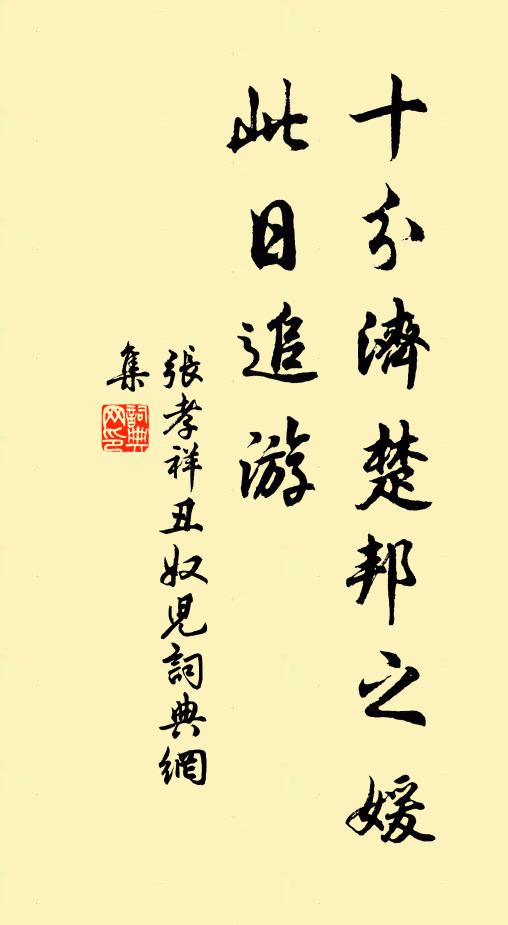 十分濟楚邦之媛
此日追游
張孝祥丑奴兒詞典網
集
詞典網印